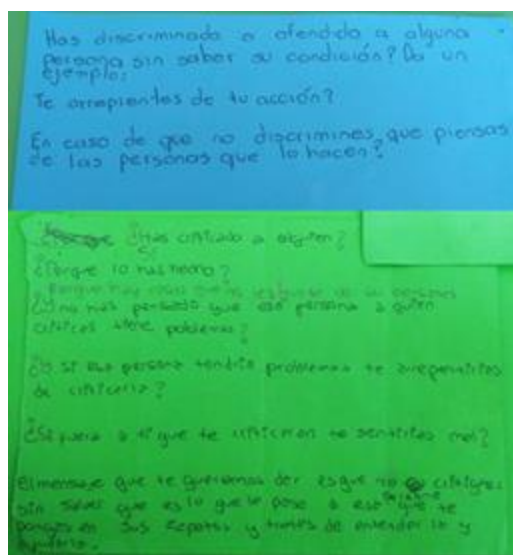 Has discriminado o ofendido a alguna
persona sin saber su condición? Da un
ejemplo:
Te arrepientes de tu acción?
En caso de que no discrimines que piensas
de las personas que lo hacen?
¿Has criticado a alguien?
Si
¿Porque lo has hecho?
Porque hay cosas que no les de las personas
¿Y no has pensado que esa persona a quien
criticas tiene problemas?
¿O si esa persona tendria problemas te arrepentirias
de criticarla?
¿Si fuera a ti que te criticaran te sentirias mal?
El mensaje que te queremos dar es que no critiques
sin saber que es lo que le pasa a esa persona que te
pongas en sus zapatos y trates de entenderlo y
ayudarlo.